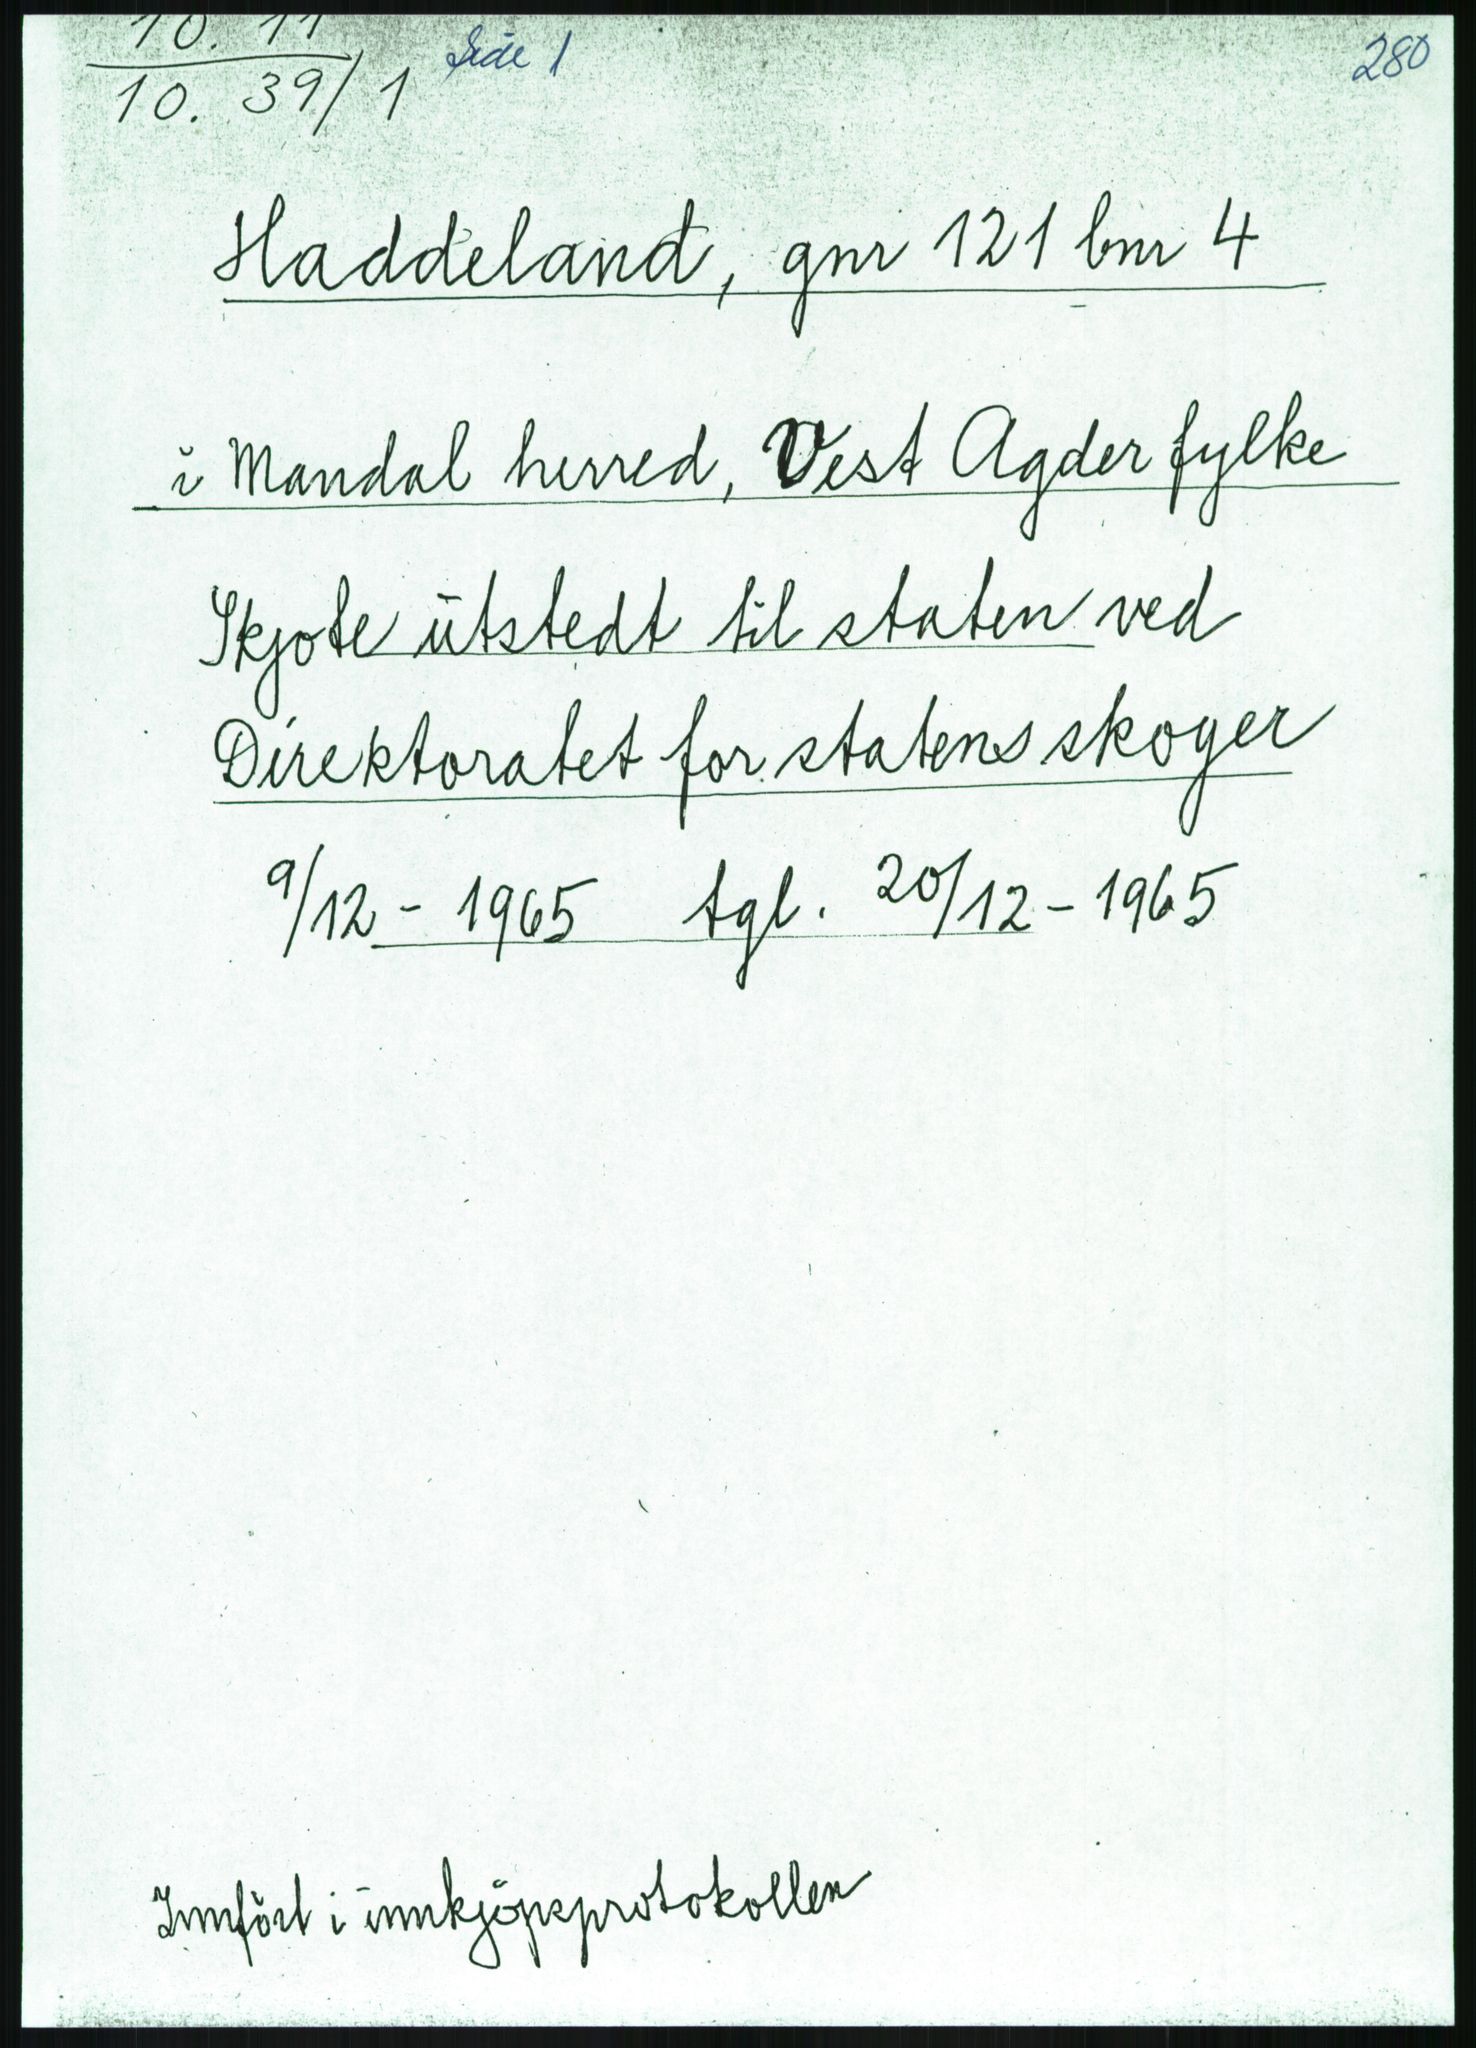 10. 11
10. 39/1
Side 1
280
Haddeland, gnr 121 bnr 4
i Mandal herred, Vest Agder fylke
Skjøte utstedt til staten ved
Direktoratet for statens skoger
9/12 - 1965 tgl. 20/12 - 1965
Innført i innkjøpsprotokollen